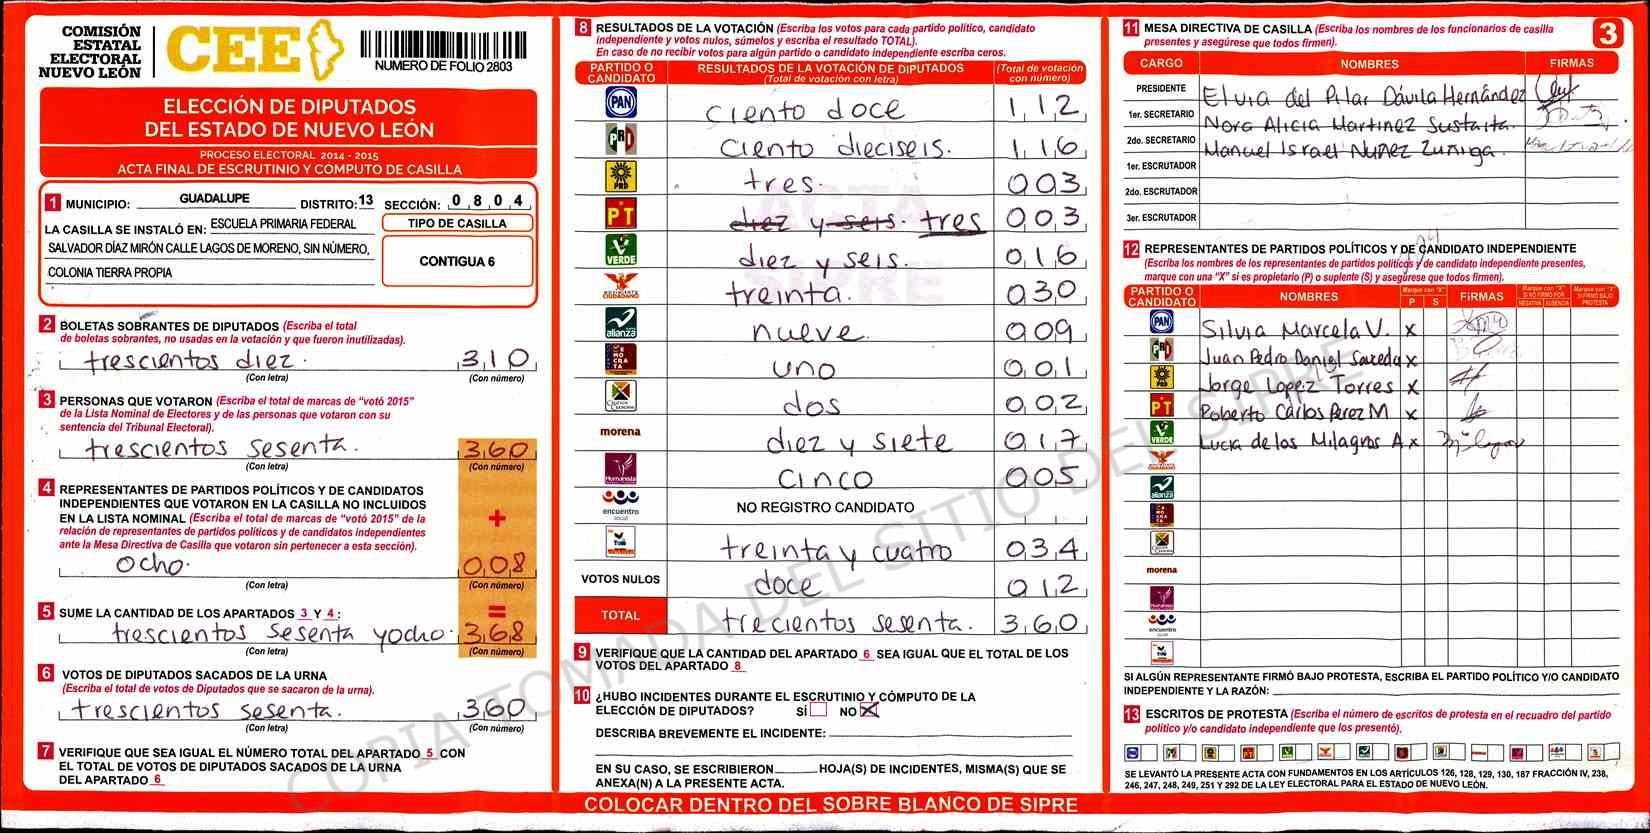 COMISIÓN
ESTATAL
ELECTORAL
NUEVO LEÓN
CEE
NUMERO DE FOLIO 2803
ELECCIÓN DE DIPUTADOS
DEL ESTADO DE NUEVO LEÓN
PROCESO ELECTORAL 2014 - 2015
ACTA FINAL DE ESCRUTINIO Y CÓMPUTO DE CASILLA
1 MUNICIPIO: GUADALUPE DISTRITO: 13 SECCIÓN: 0 8 0 4
LA CASILLA SE INSTALÓ EN: ESCUELA PRIMARIA FEDERAL
SALVADOR DÍAZ MIRÓN CALLE LAGOS DE MORENO, SIN NÚMERO,
COLONIA TIERRA PROPIA
TIPO DE CASILLA
CONTIGUA 6
2 BOLETAS SOBRANTES DE DIPUTADOS (Escriba el total
de boletas sobrantes, no usadas en la votación y que fueron inutilizadas).
trescientos diez. 310
(Con letra) (Con número)
3 PERSONAS QUE VOTARON (Escriba el total de marcas de "votó 2015"
de la Lista Nominal de Electores y de las personas que votaron con su
sentencia del Tribunal Electoral).
trescientos sesenta. 360
(Con letra) (Con número)
4 REPRESENTANTES DE PARTIDOS POLÍTICOS Y DE CANDIDATOS
INDEPENDIENTES QUE VOTARON EN LA CASILLA NO INCLUIDOS
EN LA LISTA NOMINAL (Escriba el total de marcas de "votó 2015" de la
relación de representantes de partidos políticos y de candidatos independientes
ante la Mesa Directiva de Casilla que votaron sin pertenecer a esta sección).
+
ocho. 008
(Con letra) (Con número)
5 SUME LA CANTIDAD DE LOS APARTADOS 3 Y 4 : =
trescientos sesenta yocho. 368
(Con letra) (Con número)
6 VOTOS DE DIPUTADOS SACADOS DE LA URNA
(Escriba el total de votos de Diputados que se sacaron de la urna).
trescientos sesenta. 360
(Con letra) (Con número)
7 VERIFIQUE QUE SEA IGUAL EL NÚMERO TOTAL DEL APARTADO 5 CON
EL TOTAL DE VOTOS DE DIPUTADOS SACADOS DE LA URNA
DEL APARTADO 6
8 RESULTADOS DE LA VOTACIÓN (Escriba los votos para cada partido político, candidato
independiente y votos nulos, súmelos y escriba el resultado TOTAL).
En caso de no recibir votos para algún partido o candidato independiente escriba ceros.
PARTIDO O CANDIDATO RESULTADOS DE LA VOTACIÓN DE DIPUTADOS (Total de votación con letra) (Total de votación con número)
PAN ciento doce 112
PRD ciento dieciseis. 116
PRD tres. 003
PT diez y seis. tres 003
VERDE diez y seis. 016
MOVIMIENTO CIUDADANO treinta. 030
alianza nueve. 009
DEMOCRATA uno 001
dos 002
morena diez y siete 017
Humanista cinco 005
encuentro social NO REGISTRO CANDIDATO
treinta y cuatro 034
VOTOS NULOS doce 012
TOTAL trecientos sesenta. 360
ACTA
SIPRE
9 VERIFIQUE QUE LA CANTIDAD DEL APARTADO 6 SEA IGUAL QUE EL TOTAL DE LOS
VOTOS DEL APARTADO 8
10 ¿HUBO INCIDENTES DURANTE EL ESCRUTINIO Y CÓMPUTO DE LA
ELECCIÓN DE DIPUTADOS? SÍ NO X
DESCRIBA BREVEMENTE EL INCIDENTE:
EN SU CASO, SE ESCRIBIERON HOJA(S) DE INCIDENTES, MISMA(S) QUE SE
ANEXA(N) A LA PRESENTE ACTA.
COLOCAR DENTRO DEL SOBRE BLANCO DE SIPRE
11 MESA DIRECTIVA DE CASILLA (Escriba los nombres de los funcionarios de casilla
presentes y asegúrese que todos firmen).
3
CARGO NOMBRES FIRMAS
PRESIDENTE Elvia del Pilar Dávila Hernández
1er. SECRETARIO Nora Alicia Martinez Sustaita.
2do. SECRETARIO Manuel Israel Nuñez Zuñiga.
1er. ESCRUTADOR
2do. ESCRUTADOR
3er. ESCRUTADOR
12 REPRESENTANTES DE PARTIDOS POLÍTICOS Y DE CANDIDATO INDEPENDIENTE
(Escriba los nombres de los representantes de partidos políticos y de candidato independiente presentes,
marque con una "X" si es propietario (P) o suplente (S) y asegúrese que todos firmen).
PARTIDO O CANDIDATO NOMBRES Marque con "X" P S FIRMAS Marque con "X" SI NO FIRMÓ POR NEGATIVA AUSENCIA Marque con "X" SI FIRMÓ BAJO PROTESTA
PAN Silvia Marcela V. x
PRD Juan Pedro Daniel Sauceda x
PRD Jorge Lopez Torres x
PT Roberto Carlos Perez M x
VERDE Lucia de los Milagros A x
alianza
morena
Humanista
encuentro social
SI ALGÚN REPRESENTANTE FIRMÓ BAJO PROTESTA, ESCRIBA EL PARTIDO POLÍTICO Y/O CANDIDATO
INDEPENDIENTE Y LA RAZÓN:
13 ESCRITOS DE PROTESTA (Escriba el número de escritos de protesta en el recuadro del partido
político y/o candidato independiente que los presentó).
SE LEVANTÓ LA PRESENTE ACTA CON FUNDAMENTOS EN LOS ARTÍCULOS 126, 128, 129, 130, 187 FRACCIÓN IV, 238,
246, 247, 248, 249, 251 Y 292 DE LA LEY ELECTORAL PARA EL ESTADO DE NUEVO LEÓN.
COPIA TOMADA DEL SITIO DEL SIPRE